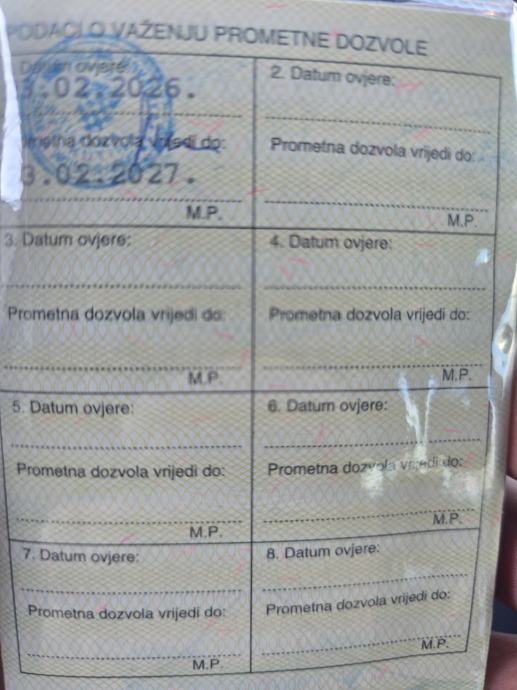 PODACI O VAŽENJU PROMETNE DOZVOLE
Datum ovjere:
3.02.2026.
Prometna dozvola vrijedi do:
3.02.2027.
M.P.
2. Datum ovjere:
Prometna dozvola vrijedi do:
M.P.
3. Datum ovjere:
Prometna dozvola vrijedi do:
M.P.
4. Datum ovjere:
Prometna dozvola vrijedi do:
M.P.
5. Datum ovjere:
Prometna dozvola vrijedi do:
M.P.
6. Datum ovjere:
Prometna dozvola vrijedi do:
M.P.
7. Datum ovjere:
Prometna dozvola vrijedi do:
M.P.
8. Datum ovjere:
Prometna dozvola vrijedi do:
M.P.